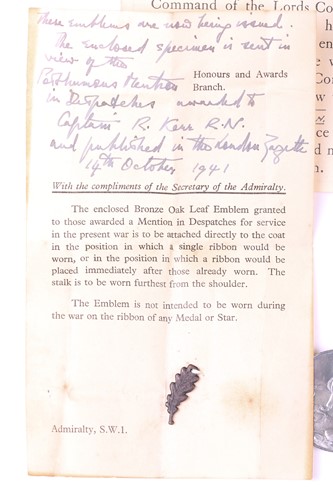 Command of the Lords Co
These emblems are now being issued.
The enclosed specimen is sent in
view of the
Posthumous Mention Honours and Awards
in Despatches awarded to Branch.
Captain R. Kerr R.N.
and published in the London Gazette
14th October 1941
With the compliments of the Secretary of the Admiralty.
The enclosed Bronze Oak Leaf Emblem granted
to those awarded a Mention in Despatches for service
in the present war is to be attached directly to the coat
in the position in which a single ribbon would be
worn, or in the position in which a ribbon would be
placed immediately after those already worn. The
stalk is to be worn furthest from the shoulder.
The Emblem is not intended to be worn during
the war on the ribbon of any Medal or Star.
Admiralty, S.W.1.